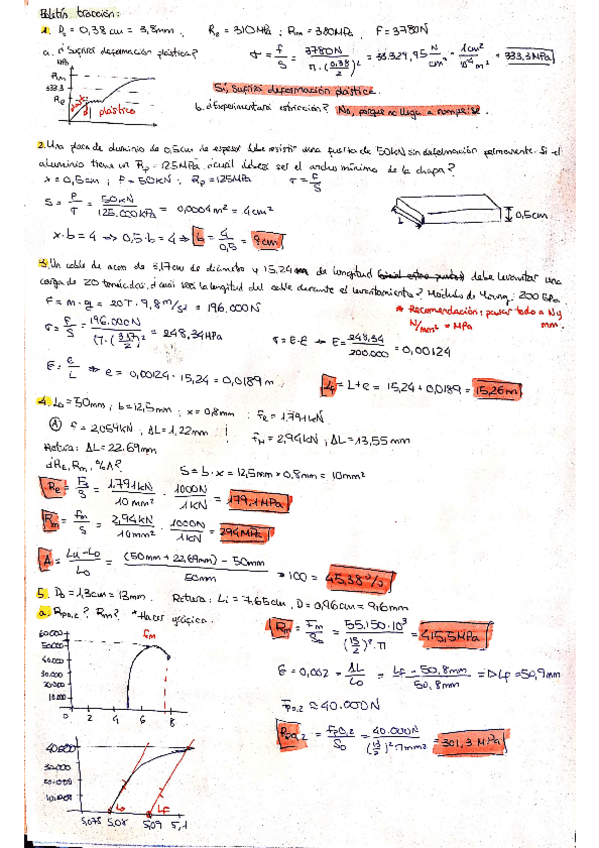 Boletín tracción:
1. D₀ = 0,38 cm = 3,8mm. Re = 310MPa; Rm = 380MPa, F = 3780N
a. ¿Sufrirá deformación plástica? σ = F/S = 3780N / π·(0,38/2)² = 33.329,95 N/cm² · 1cm²/10⁻⁴m² = 333,3MPa
MPa
Rm
333.3
Re
plástico
Sí, sufrirá deformación plástica.
b. ¿Experimentará estricción? No, porque no llega a romperse.
2. Una placa de aluminio de 0,5cm de espesor debe resistir una fuerza de 50KN sin deformación permanente. Si el
aluminio tiene un Rp = 125MPa, ¿cuál deberá ser el ancho mínimo de la chapa?
x = 0,5cm; F = 50KN; Rp = 125MPa σ = F/S
S = F/σ = 50KN / 125.000KPa = 0,0004m² = 4cm²
x·b = 4 ⇒ 0,5·b = 4 ⇒ b = 4/0,5 =
L
0,5cm
3. Un cable de acero de 3,17cm de diámetro y 15,24m de longitud debe levantar una
carga de 20 toneladas, ¿cuál será la longitud del cable durante el levantamiento? Módulo de Young: 200 GPa.
F = m·g = 20T · 9,8m/s² = 196.000N
* Recomendación: pasar todo a N y mm.
N/mm² = MPa
σ = F/S = 196.000N = 248,34MPa σ = E·ε ⇒ ε = 248,34 / 200.000 = 0,00124
ε = e/L ⇒ e = 0,00124 · 15,24 = 0,0189m Lf = L+e = 15,24 + 0,0189 = 15,26m
4. L₀ = 50mm; b = 12,5mm; x = 0,8mm; Fe = 1,791KN
ΔL = 1,22mm FM = 2,94KN; ΔL = 13,55mm
Rotura: ΔL = 22.69mm
¿Re, Rm, %A? S = b·x = 12,5mm × 0,8mm = 10mm²
Re = Fe/S = 1.791KN / 10mm² · 1000N/1KN = 179,1MPa
Rm = Fm/S = 2,94KN / 10mm² · 1000N/1KN = 294MPa
A = Lu-L₀ / L₀ = (50mm + 22,69mm) - 50mm / 50mm × 100 = 45,38%
5. D₀ = 1,3cm = 13mm. Rotura: Li = 7,65cm, D = 0,96cm = 9,6mm
a. Rp0,2? Rm? *Hacer gráfica.
Rm = Fm/S₀ = 55.150·10³ / (13/2)²·π = 415,5MPa
60.000
50000
40.000
30.000
20.000
10.000
Fm
0 2 4 6 8
ε = 0,002 = ΔL/L₀ = Lf - 50,8mm / 50,8mm ⇒ Lf = 50,9mm
Fp0,2 ≈ 40.000N
Rp0,2 = Fp0,2/S₀ = 40.000N / (13/2)²πmm² = 301,3 MPa
40.000
30.000
20.000
10.000
L₀ Lf
5,075 5,08 5,09 5,1